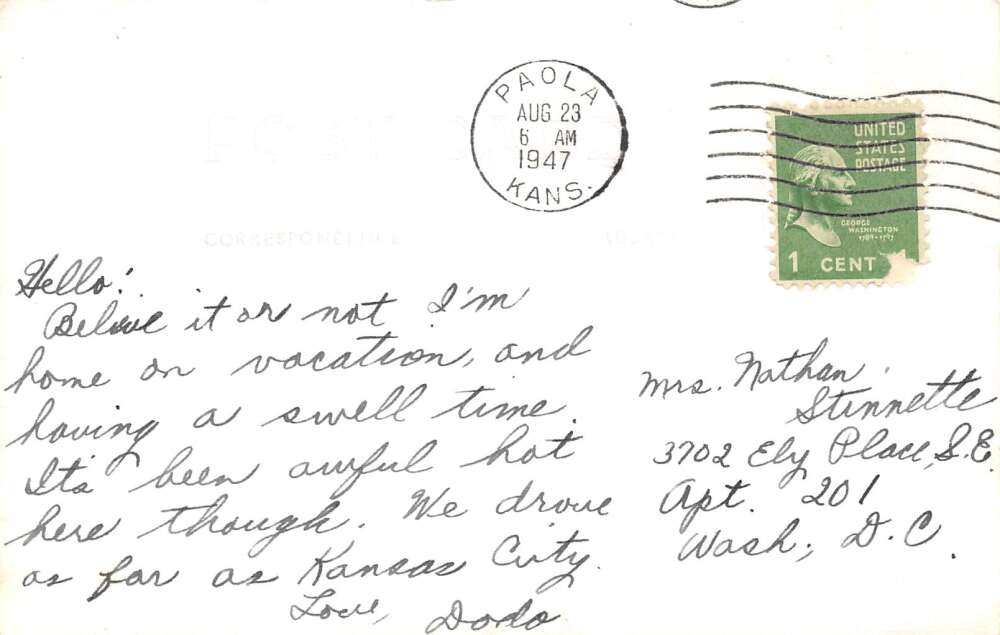 PAOLA
AUG 23
6 AM
1947
KANS.
UNITED
STATES
POSTAGE
GEORGE
WASHINGTON
1789-1797
1 CENT
CORRESPONDENCE
Hello!
Believe it or not I'm
home on vacation, and
having a swell time.
Its been awful hot
here though. We drove
as far as Kansas City.
Love, Dodo
Mrs. Nathan
Stinnette
3702 Ely Place, S.E.
Apt. 201
Wash., D.C.